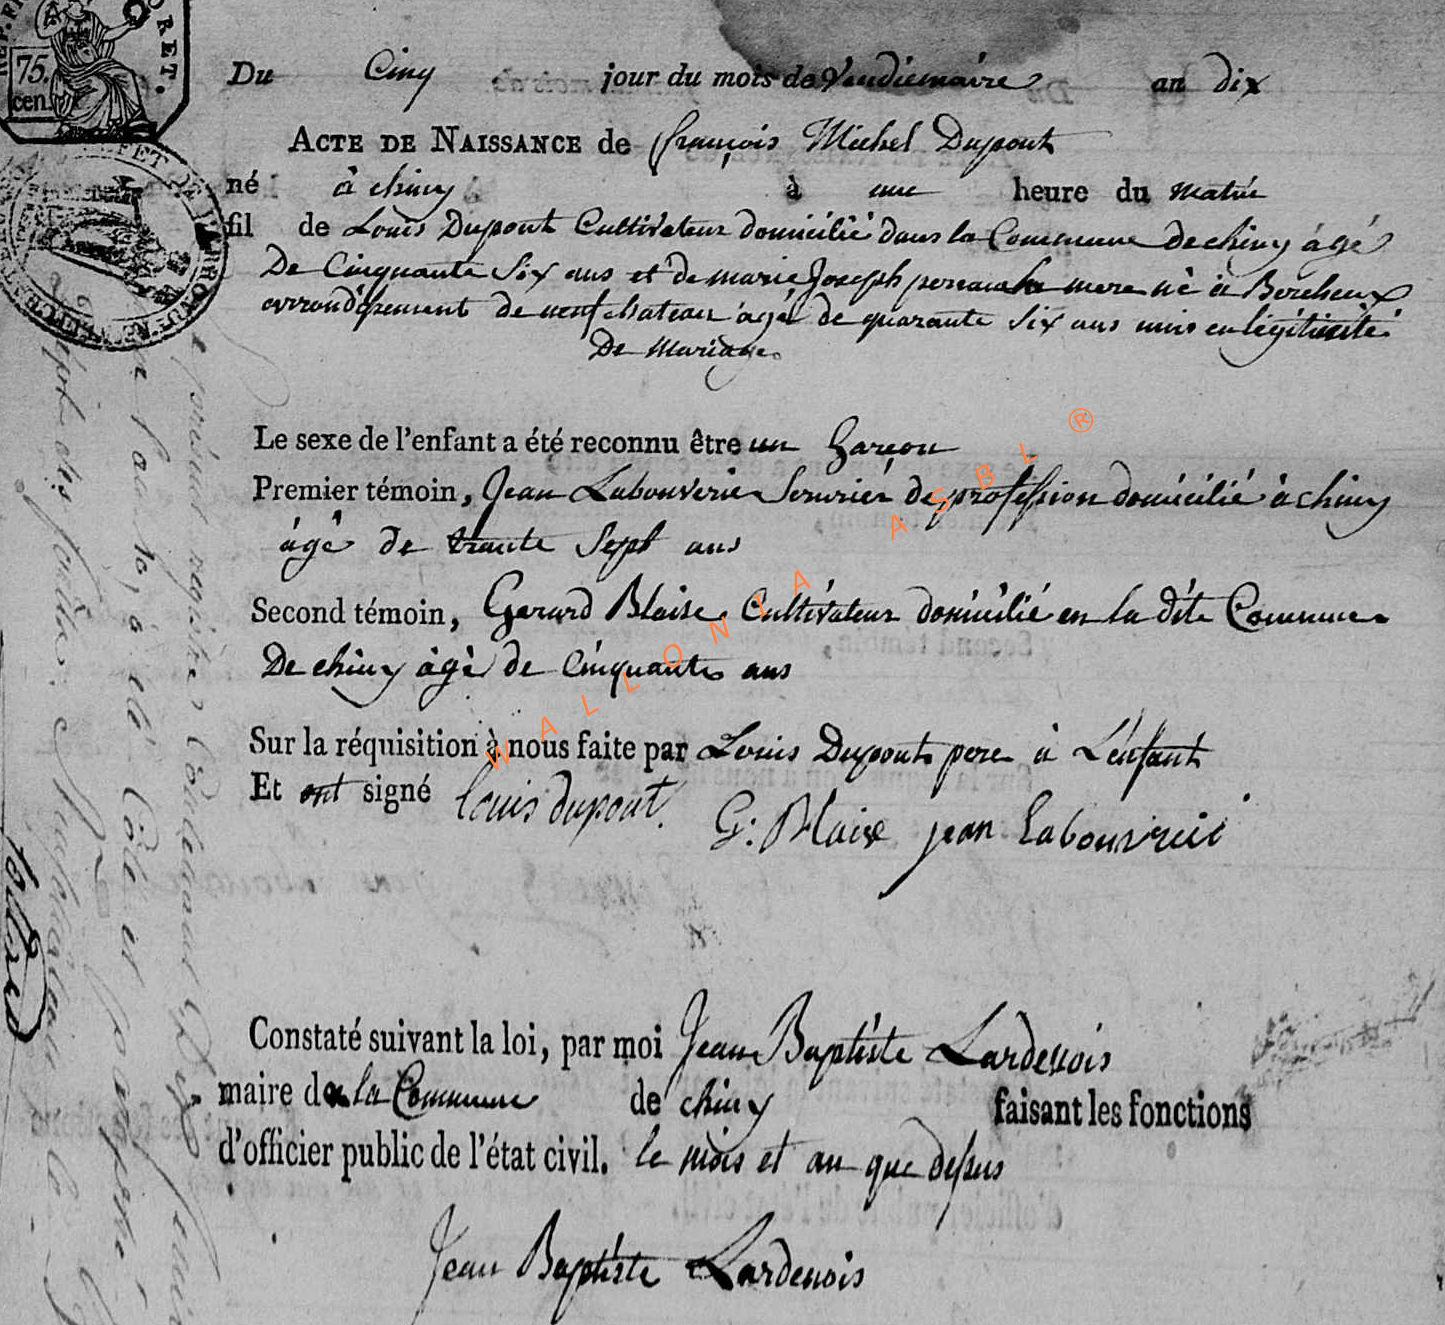 RET.
75.
cen.
Du Cinq jour du mois de Vendiemaire an dix
ACTE DE NAISSANCE de françois Michel Dupont
né à chiny à une heure du matin
fil de Louis Dupont Cultivateur domicilié dans la Commune de chiny âgé
De Cinquante Six ans et de marie Joseph mere né à Bercheux
arrondissement de neufchateau agé de quarante Six ans unis en légitimité
De Mariage
Le sexe de l'enfant a été reconnu être un Garçon
Premier témoin, Jean Labouverie Serurier de profession domicilié à chiny
âgé de trante Sept ans
Second témoin, Gerard Blaise Cultivateur domicilié en la dite Commune
De chiny âgé de Cinquante ans
Sur la réquisition à nous faite par Louis Dupont pere à L'enfant
Et ont signé louis dupont. G: Blaise jean Labouverie
Constaté suivant la loi, par moi Jean Baptiste Lardenois
maire de la Commune de chiny faisant les fonctions
d'officier public de l'état civil. le mois et an que dessus
Jean Baptiste Lardenois
WALLONIA ASBL ®